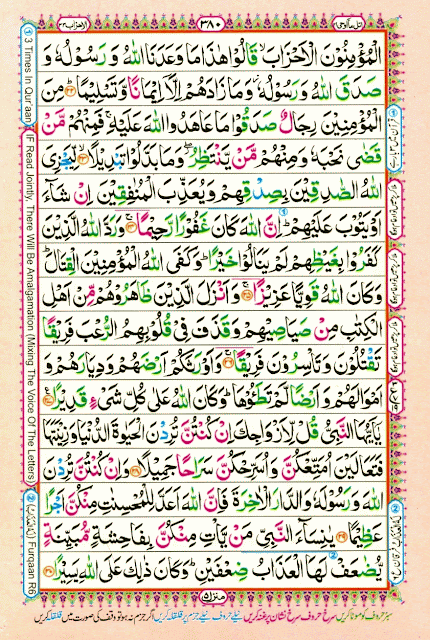 اتل ماۤ اوحی ۲۱
۳۸۰
الاحزاب ۳۳
الْمُؤْمِنُوْنَ الْاَحْزَابَ ۙ قَالُوْا هٰذَا مَا وَعَدَنَا اللّٰهُ وَ رَسُوْلُهٗ وَ
صَدَقَ اللّٰهُ وَ رَسُوْلُهٗ ؗ وَ مَا زَادَهُمْ اِلَّاۤ اِیْمَانًا وَّ تَسْلِیْمًا ؕ۲۲ مِنَ
الْمُؤْمِنِیْنَ رِجَالٌ صَدَقُوْا مَا عَاهَدُوا اللّٰهَ عَلَیْهِ ۚ فَمِنْهُمْ مَّنْ
قَضٰی نَحْبَهٗ وَ مِنْهُمْ مَّنْ یَّنْتَظِرُ ۖؗ وَ مَا بَدَّلُوْا تَبْدِیْلًا ۙ۲۳ لِّیَجْزِیَ
اللّٰهُ الصّٰدِقِیْنَ بِصِدْقِهِمْ وَ یُعَذِّبَ الْمُنٰفِقِیْنَ اِنْ شَآءَ
اَوْ یَتُوْبَ عَلَیْهِمْ ؕ اِنَّ اللّٰهَ كَانَ غَفُوْرًا رَّحِیْمًا ۚ۲۴ وَ رَدَّ اللّٰهُ الَّذِیْنَ
كَفَرُوْا بِغَیْظِهِمْ لَمْ یَنَالُوْا خَیْرًا ؕ وَ كَفَی اللّٰهُ الْمُؤْمِنِیْنَ الْقِتَالَ ؕ
وَ كَانَ اللّٰهُ قَوِیًّا عَزِیْزًا ۚ۲۵ وَ اَنْزَلَ الَّذِیْنَ ظَاهَرُوْهُمْ مِّنْ اَهْلِ
الْكِتٰبِ مِنْ صَیَاصِیْهِمْ وَ قَذَفَ فِیْ قُلُوْبِهِمُ الرُّعْبَ فَرِیْقًا
تَقْتُلُوْنَ وَ تَاْسِرُوْنَ فَرِیْقًا ۚ۲۶ وَ اَوْرَثَكُمْ اَرْضَهُمْ وَ دِیَارَهُمْ وَ
اَمْوَالَهُمْ وَ اَرْضًا لَّمْ تَطَـُٔوْهَا ؕ وَ كَانَ اللّٰهُ عَلٰی كُلِّ شَیْءٍ قَدِیْرًا ۠۲۷
یٰۤاَیُّهَا النَّبِیُّ قُلْ لِّاَزْوَاجِكَ اِنْ كُنْتُنَّ تُرِدْنَ الْحَیٰوةَ الدُّنْیَا وَ زِیْنَتَهَا
فَتَعَالَیْنَ اُمَتِّعْكُنَّ وَ اُسَرِّحْكُنَّ سَرَاحًا جَمِیْلًا ۲۸ وَ اِنْ كُنْتُنَّ تُرِدْنَ
اللّٰهَ وَ رَسُوْلَهٗ وَ الدَّارَ الْاٰخِرَةَ فَاِنَّ اللّٰهَ اَعَدَّ لِلْمُحْسِنٰتِ مِنْكُنَّ اَجْرًا
عَظِیْمًا ۲۹ یٰنِسَآءَ النَّبِیِّ مَنْ یَّاْتِ مِنْكُنَّ بِفَاحِشَةٍ مُّبَیِّنَةٍ
یُّضٰعَفْ لَهَا الْعَذَابُ ضِعْفَیْنِ ؕ وَ كَانَ ذٰلِكَ عَلَی اللّٰهِ یَسِیْرًا ۳۰
منزل ۵
① 3 Times In Qur'aan
(IF Read Jointly, There Will Be Amalgamation (Mixing The Voice Of The Letters)
② Furqaan R6